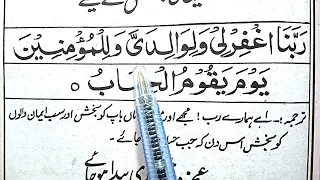 رَبَّنَا اغْفِرْ لِیْ وَلِوَالِدَیَّ وَلِلْمُؤْمِنِیْنَ
یَوْمَ یَقُوْمُ الْحِسَابُ ○
ترجمہ: اے ہمارے رب! مجھے اور ماں باپ کو بخشش اور سب ایمان والوں
کو بخشش اس دن کہ جب حساب جائے۔
پیدا ہو جائے